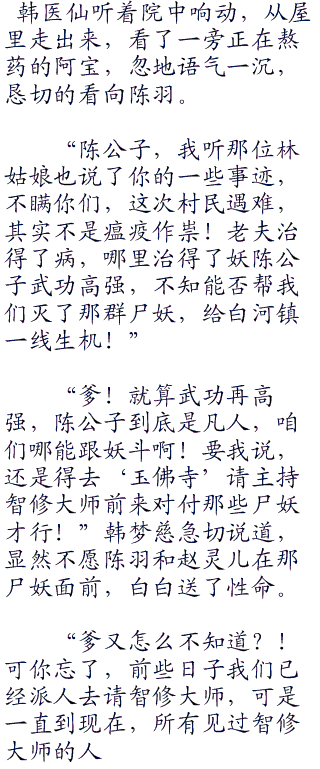 韩医仙听着院中响动，从屋
里走出来，看了一旁正在熬
药的阿宝，忽地语气一沉，
恳切的看向陈羽。
“陈公子，我听那位林
姑娘也说了你的一些事迹，
不瞒你们，这次村民遇难，
其实不是瘟疫作祟！老夫治
得了病，哪里治得了妖陈公
子武功高强，不知能否帮我
们灭了那群尸妖，给白河镇
一线生机！”
“爹！就算武功再高
强，陈公子到底是凡人，咱
们哪能跟妖斗啊！要我说，
还是得去‘玉佛寺’请主持
智修大师前来对付那些尸妖
才行！”韩梦慈急切说道，
显然不愿陈羽和赵灵儿在那
尸妖面前，白白送了性命。
“爹又怎么不知道？！
可你忘了，前些日子我们已
经派人去请智修大师，可是
一直到现在，所有见过智修
大师的人